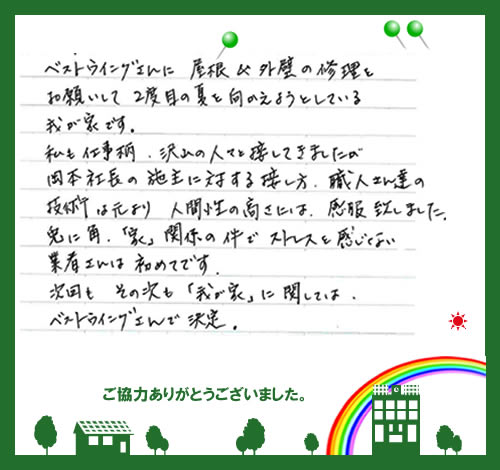 ベストウイングさんに 屋根以外壁の修理を
お願いして 2度目の夏を向のえようとしている
我が家です。
私も仕事柄、沢山の人々と接してきましたが
岡本社長の施主に対する接し方、職人さん達の
技術は元より 人間性の高さには、感服致しました。
兎に角、「家」関係の件で ストレスを感じない
業者さんは初めてです。
次回も その次も「我が家」に関しては、
ベストウイングさんで決定。
ご協力ありがとうございました。